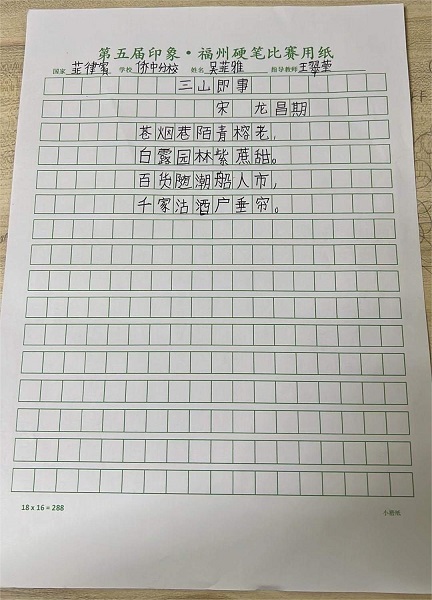 第五届印象·福州硬笔比赛用纸
国家 菲律宾 学校 侨中分校 姓名 吴菲雅 指导教师 王翠莹
三山即事
宋 龙昌期
苍烟巷陌青榕老，
白露园林紫蔗甜。
百货随潮船入市，
千家沽酒户垂帘。
18 x 16 = 288